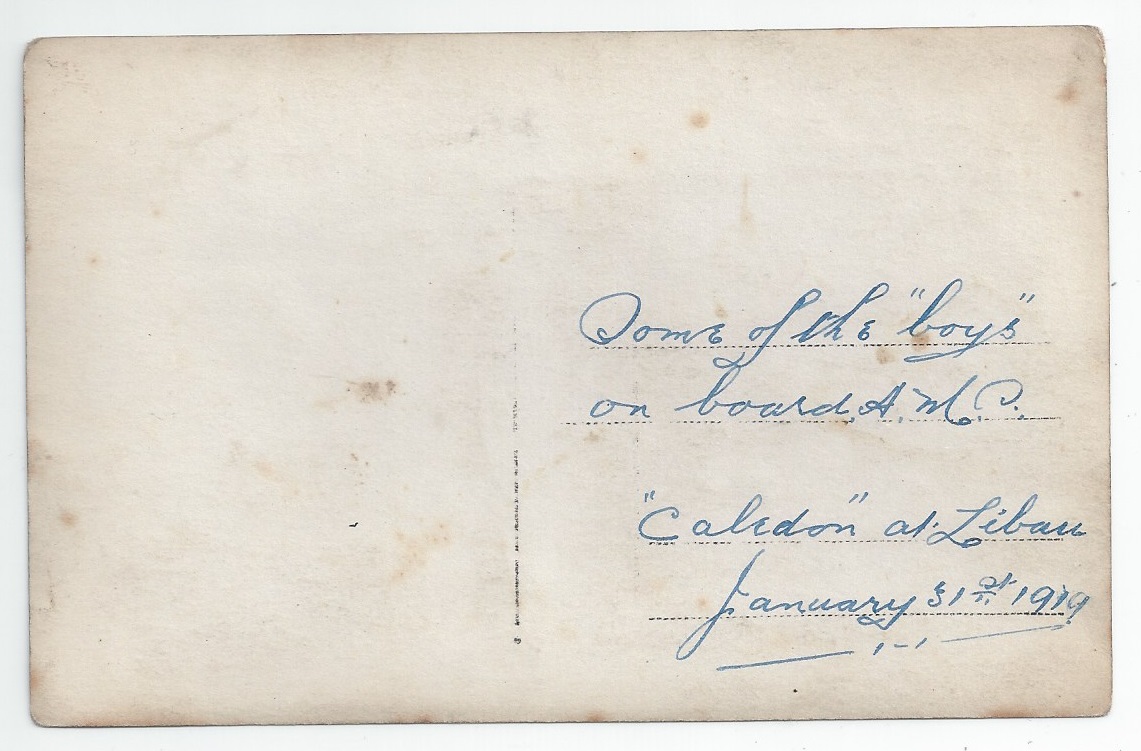 Some of the "boys"
on board, A.M.C.
"Caledon" at Libau
January 31st 1919